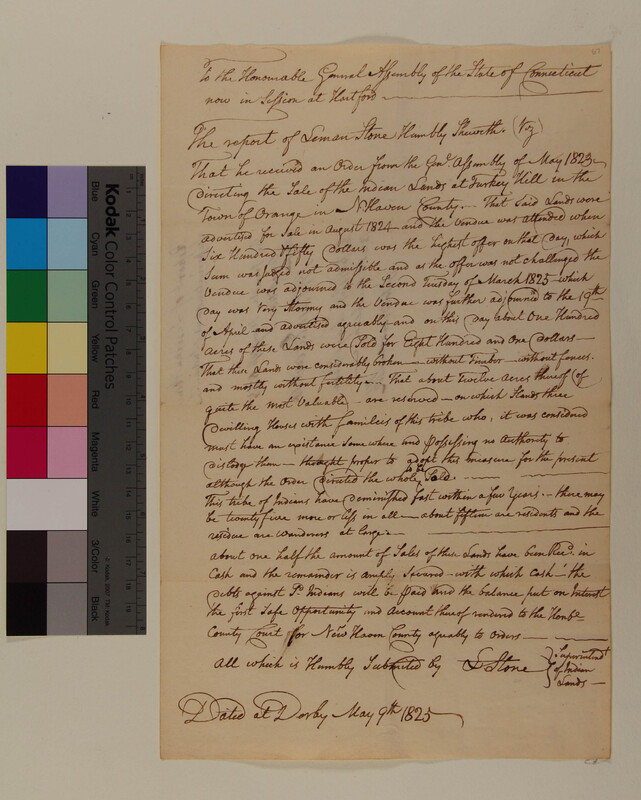 To the Honourable General Assembly of the State of Connecticut
now in Session at Hartford
The report of Leman Stone Humbly Sheweth. (Viz
That he received an Order from the Genl. Assembly of May 1823
Directing the Sale of the Indian Lands at Turkey Hill in the
Town of Orange in NHaven County. That Said Lands were
advertised for Sale in August 1824 and the Vendue was attended when
Six Hundred & fifty Dollars was the highest offer on that Day, which
Sum was judged not admissible and as the offer was not challenged the
Vendue was adjourned to the Second Tuesday of March 1825 which
Day was Very Stormy and the Vendue was further adjourned to the 19th
of April and advertised agreeably and on this day about One Hundred
Acres of these Lands were Sold for Eight Hundred and One Dollars
That these Lands were considerably broken without Timber without fences
and mostly without fertility. That about Twelve Acres thereof (of
quite the most Valuable are reserved on which Stands three
Dwilling Houses with families of this tribe who, it was considered
must have an existance Some where and possessing no Authority to
dislodge them thought proper to adopt this measure for the present
although the Order Directed the whole to be Sold.
This tribe of Indians have deminished fast within a few Years. there may
be twenty five more or less in all about fifteen are residents and the
residue are wanderers at large.
About one half the amount of Sales of these Lands have been Recd. in
Cash and the remainder is amply Secured with which Cash the
debts against Sd. Indians will be paid and the balance put on Interest
the first Safe Opportunity and Account thereof rendered to the Honbe
County Court for New Haven County agreeably to Orders
All which is Humbly Submitted by L Stone } Superintendt
of Indian
Lands
Dated at Derby May 9th 1825
Kodak
Color Control Patches
Blue
Cyan
Green
Yellow
Red
Magenta
White
3/Color
Black